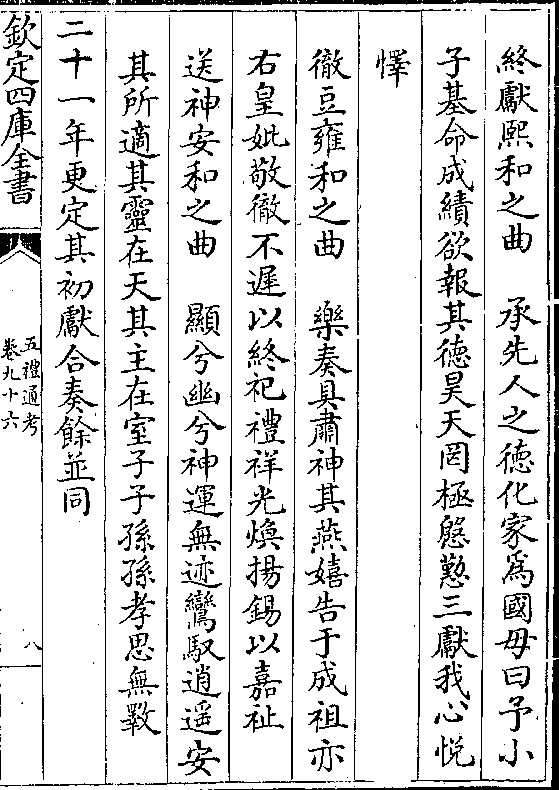 終獻熙和之曲　承先人之德化家爲國毋曰予小
子基命成績欲報其德昊天罔極慇懃三獻我心悦
懌
徹豆雍和之曲　樂奏具肅神其燕嬉告于成祖亦
右皇妣敬徹不遲以終祀禮祥光煥揚錫以嘉祉
送神安和之曲　顯兮幽兮神運無迹鸞馭逍遥安
其所適其靈在天其主在室子子孫孫孝思無斁
二十一年更定其初獻合奏餘並同
欽定四庫全書
五禮通考
卷九十六
八